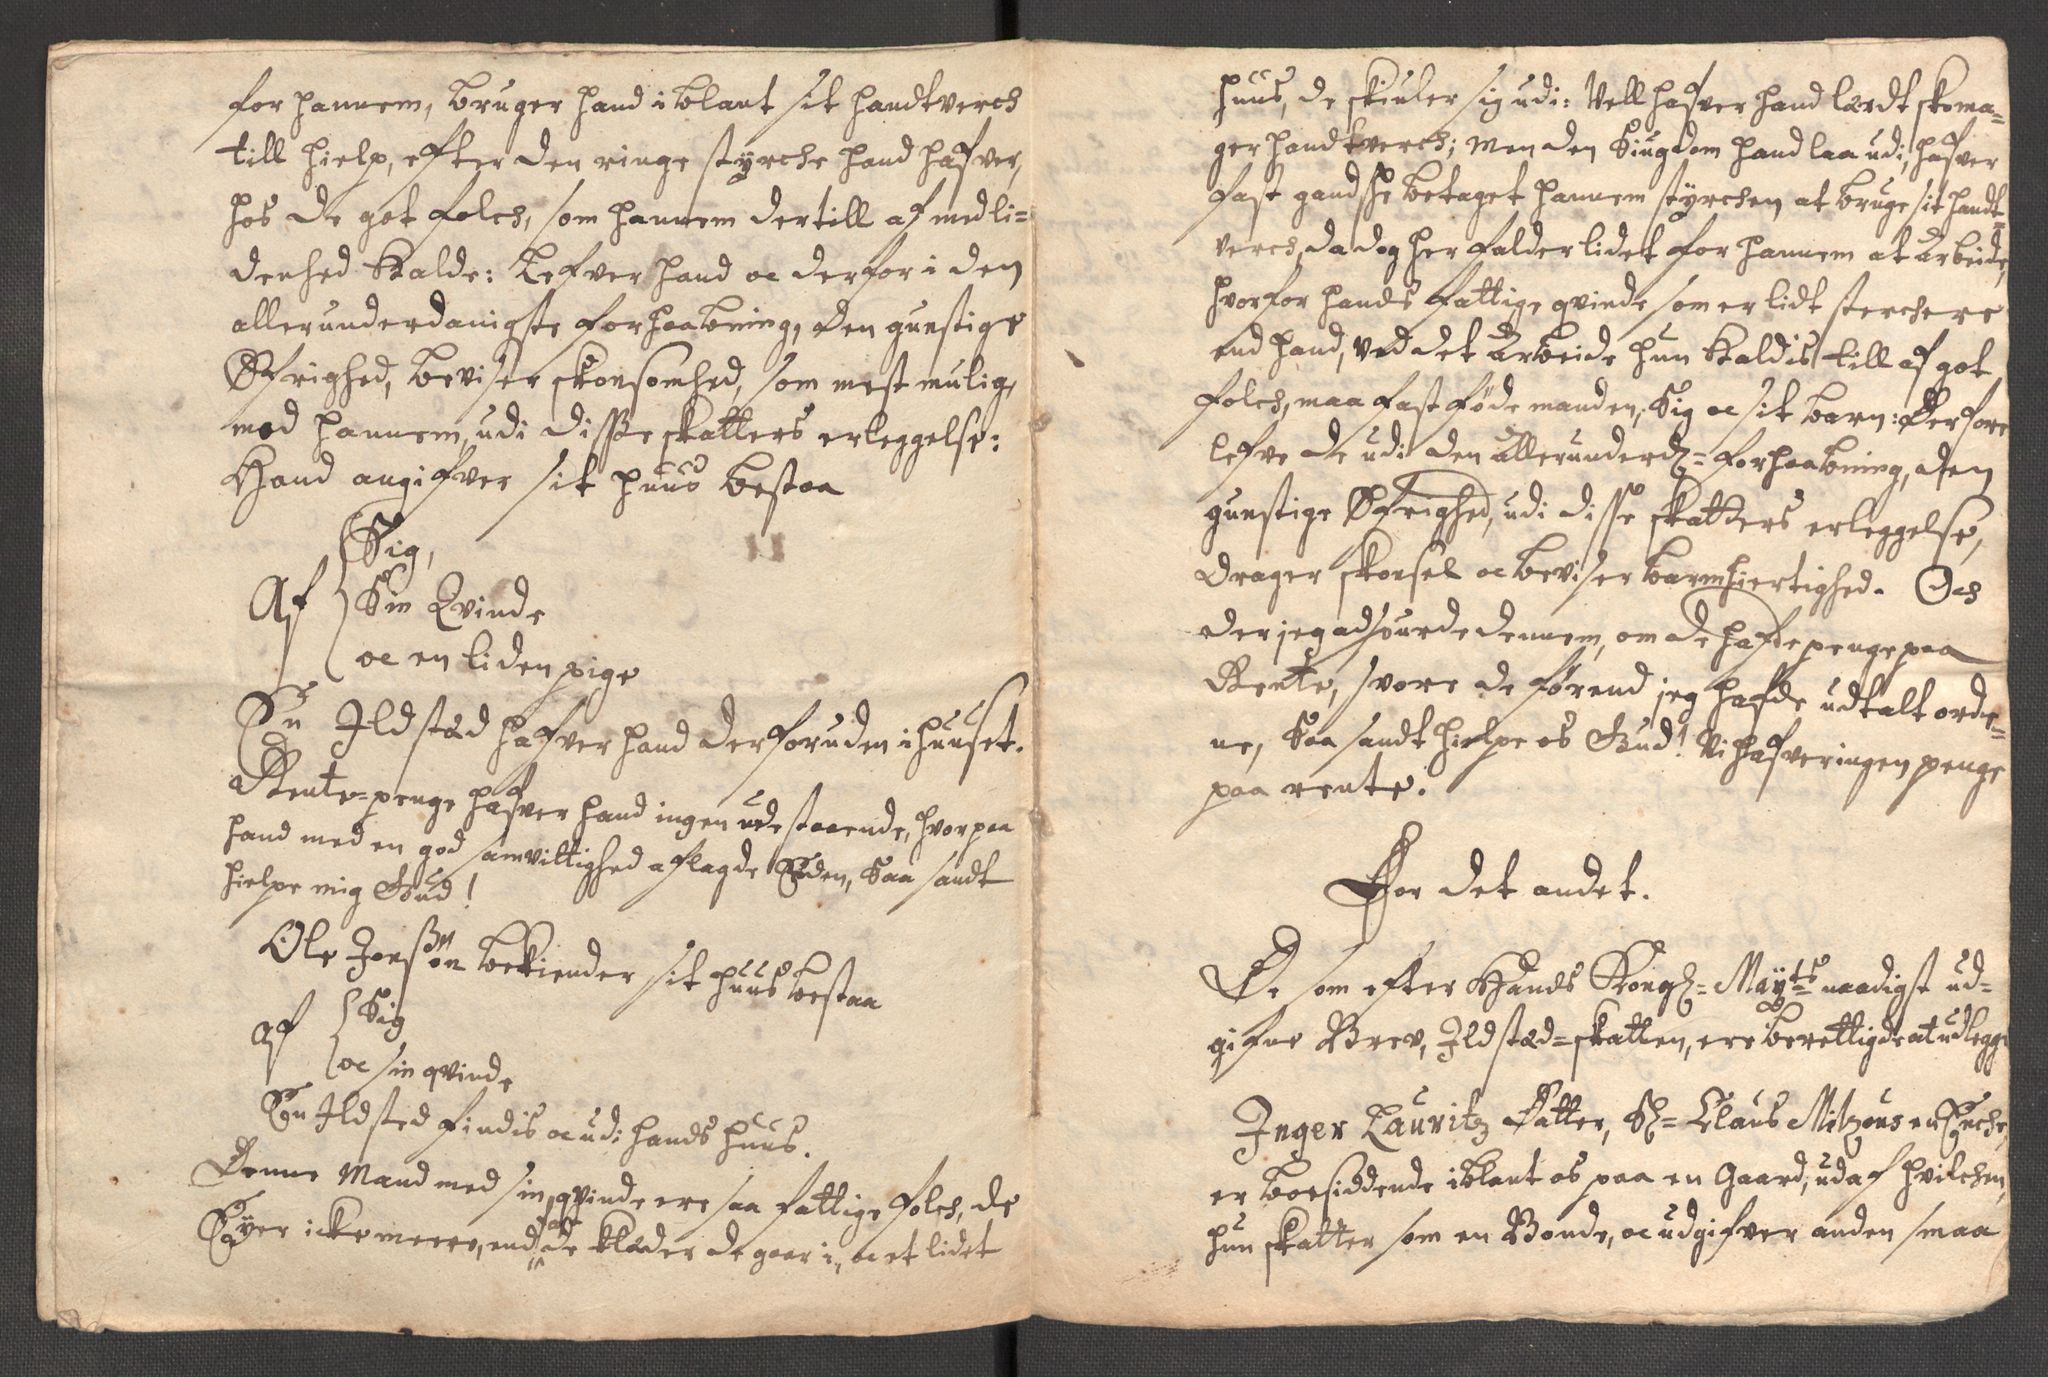 for hannem, bruger hand i blant sit handtverch
till hielp, efter den ringe styrche hand hafver,
hos de got folch, som hannem dertill af medli=
denhed kalde: Lefver hand oc derfor i den
allerunderdanigste forhaabning, den gunstige
Øfrighed, beviser skonsomhed, som mest mulig,
mod hannem, udi disse skatters erleggelse:
Hand angifver sit huus bestaa
Af { Sig,
Sin Qvinde
oc en liden pige
En Ildstæd hafver hand derforuden i huuset.
Rente=penge hafver hand ingen udestaaende, hvorpaa
hand med en god samvittighed aflagde Eeden, Saa sandt
hielpe mig Gud!
Ole Jonsøn bekiender sit huus bestaa
af { Sig
oc sin qvinde
En Ildsted findis oc udi hands huus.
Denne Mand med sin qvinde ere saa fattige folch, de
Eyer icke mere, end de klæder de gaar i, oc et lidet
huus, de skiuler sig udi: Vell hafver hand lærdt skoma=
ger handtverch; men den Siugdom hand laa udi, hafver
fast gandske betaget hannem styrchen at bruge sit handt=
verch, da dog her falder lidet for hannem at arbeide,
hvorfor hands fattige qvinde som er lidt sterchere
end hand, ved det Arbeide hun kaldis till af got
folch, maa fast føde manden, Sig oc sit barn: Derfore
lefve de udi den allerunderd:= forhaabning, den
gunstige Øfrighed, udi disse skatters erleggelse,
drager skonsel oc beviser barmhiertighed. Och
der jeg adspurde dennem, om de hafde penge paa
Rente, svore de førend jeg hafde udtalt orde=
ne, Saa sandt hielpe os Gud! Vi hafver ingen penge
paa rente.
For det andet.
De som efter Hands Kongl:= Mayts naadigst ud=
gifne Brev, Ildstæd=skatten, ere berettigde at udlegge
Inger Lauritz Datter, Sl:= Claus Mitzons Enche,
er boesiddende iblant os paa en Gaard, udaf hvilchen,
hun skatter som en Bonde, oc udgifver anden smaa